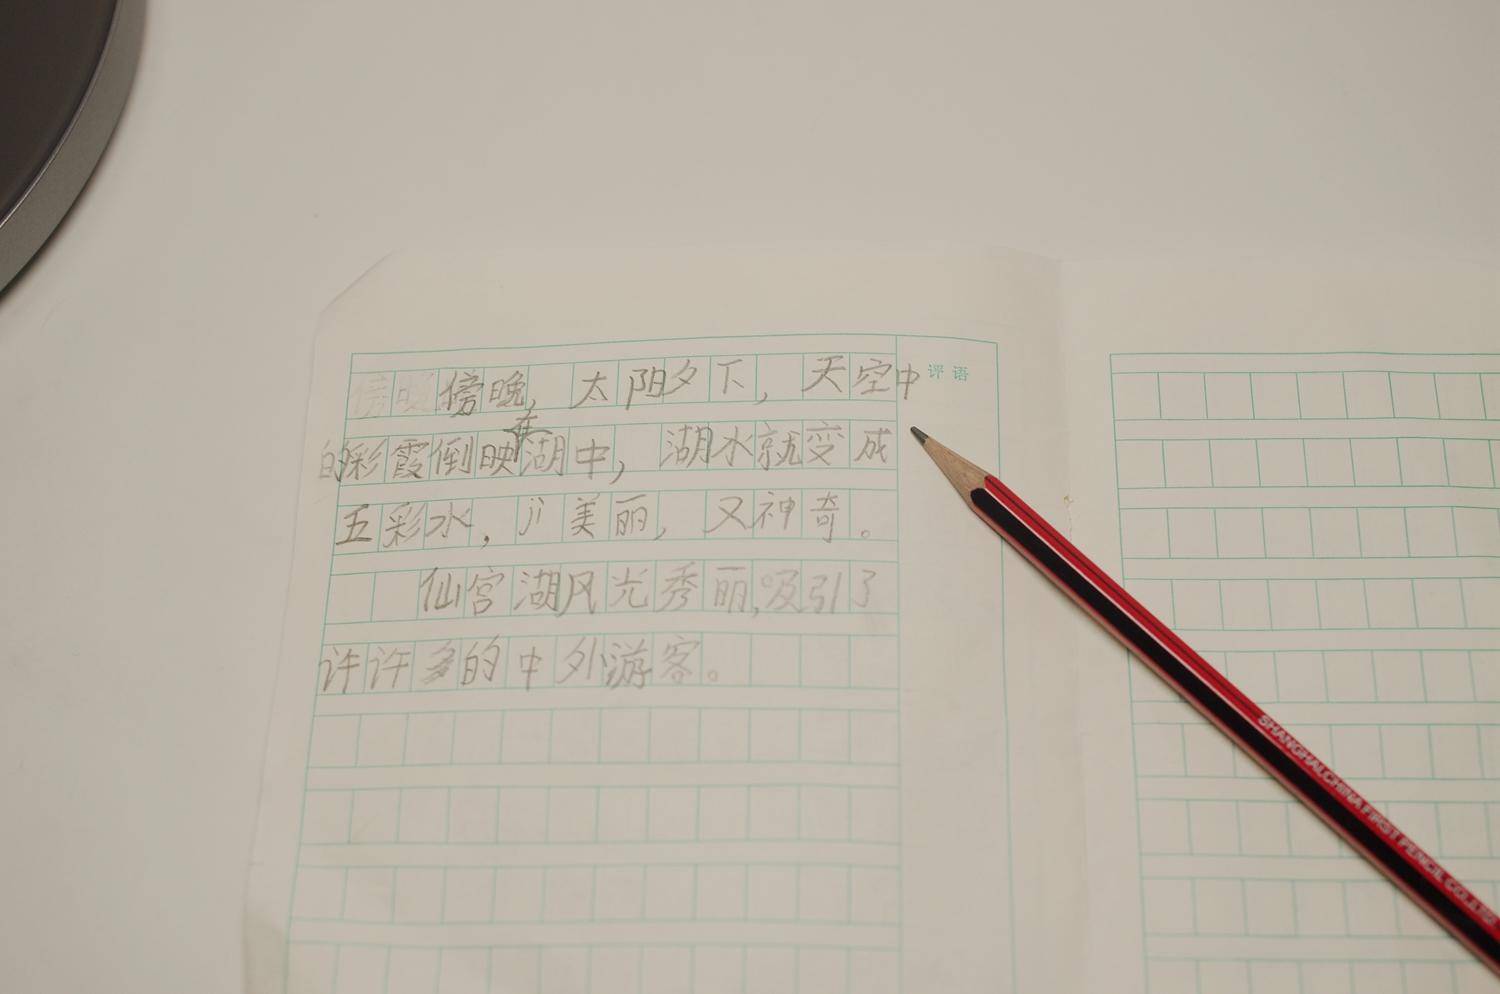 傍晚，太阳夕下，天空中
评语
的彩霞倒映在湖中，湖水就变成
五彩水，美丽，又神奇。
仙宫湖风光秀丽,吸引了
许许多的中外游客。
SHANGHAI.CHINA FIRST PENCIL CO.,LTD.